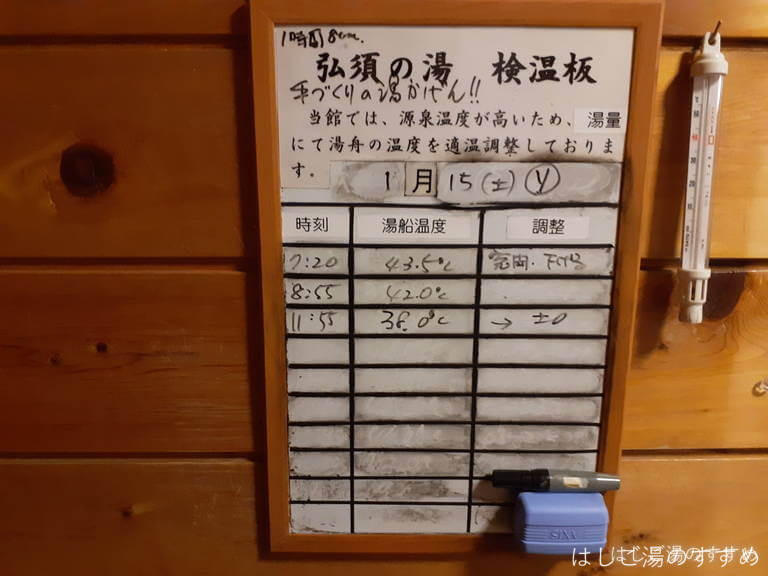 1時間8cm.
弘須の湯 検温板
手づくりの湯かげん!!
当館では、源泉温度が高いため、湯量
にて湯舟の温度を適温調整しておりま
す。
1月15(土) y
時刻 湯船温度 調整
7:20 43.5℃
8:55 42.0℃
11:55 38.0℃ → ±0
はしご湯のすすめ
はしご湯のすすめ